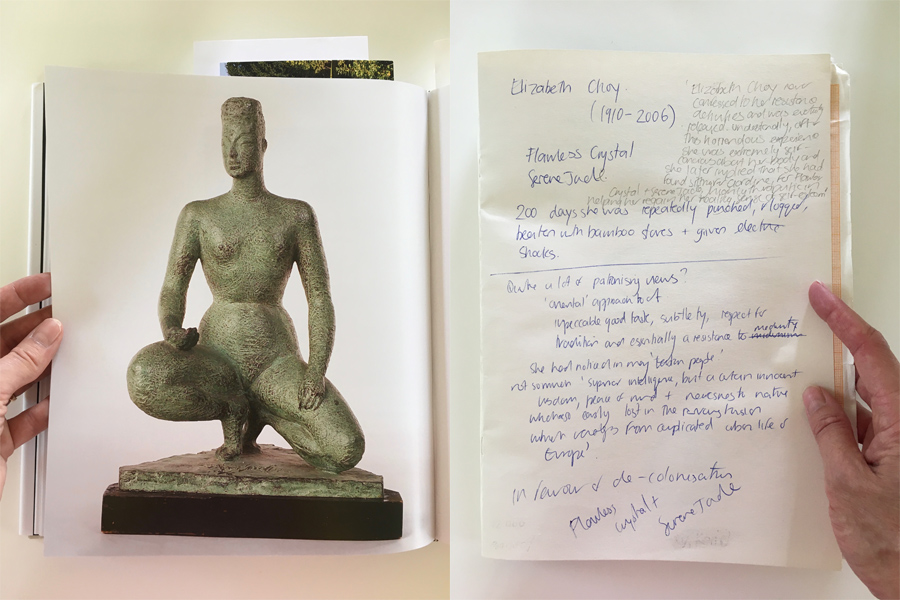 Elizabeth Choy.
(1910-2006)
'Elizabeth Choy never
confessed to her resistance
activities and was
released. Understandably, after
this horrendous experience
she was extremely self-
conscious about her body and
she later implied that she had
found for Flawless
Crystal + Serene Jade highly therapeutic in
helping her her healthy sense of self-esteem
Flawless Crystal
Serene Jade.
200 days she was repeatedly punched, flogged,
beaten with bamboo staves + given electric
shocks.
Quite a lot of patronising views?
'oriental' approach to art
impeccable good taste, subtlety, respect for
tradition and essentially a resistance to
She had noticed in many 'Eastern people'
not so much 'superior intelligence, but a certain innocent
wisdom, peace of mind + nearness to native
which is easily lost in the nervous tension
which from complicated urban life of
Europe'.
In favour of de-colonisation
Flawless
crystal +
Serene Jade